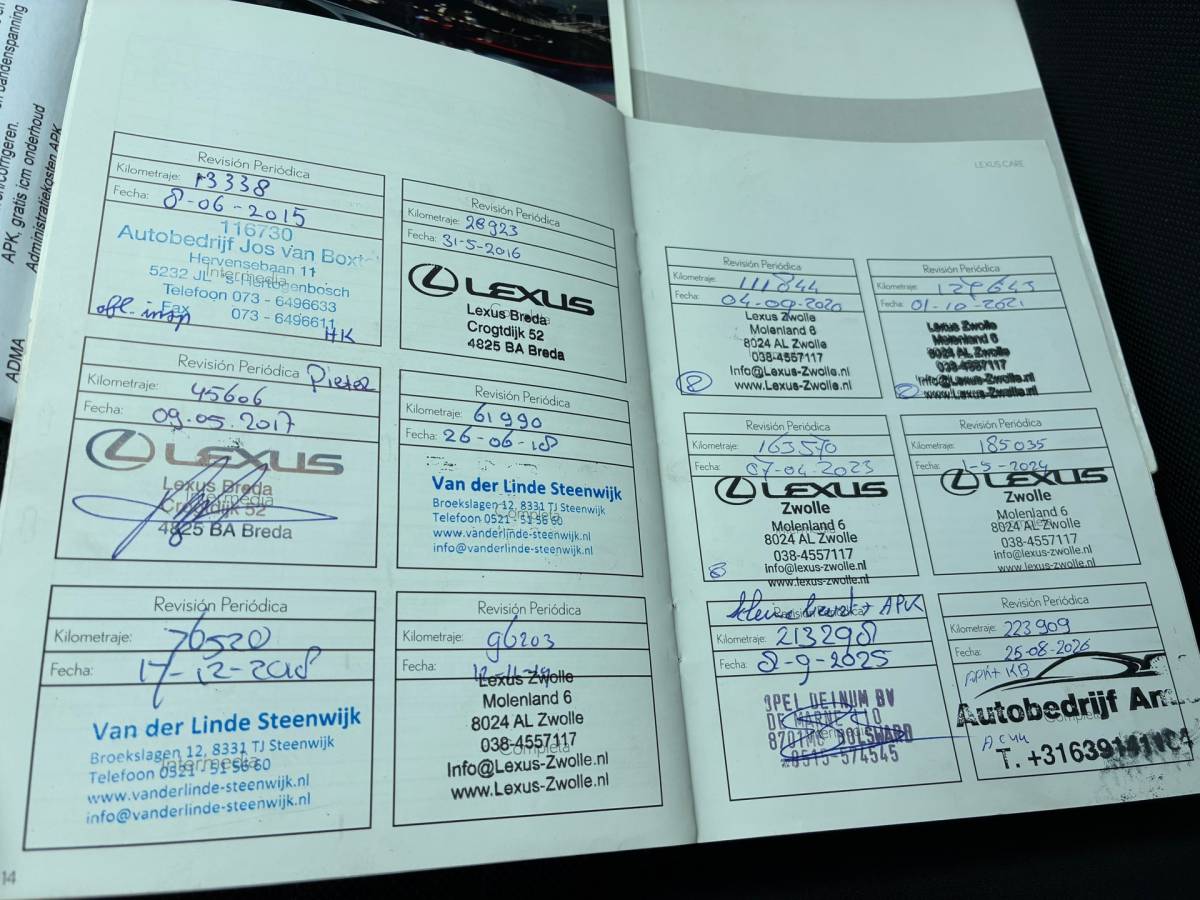 en bandenspanning
corrigeren.
APK, gratis icm onderhoud
Administratiekosten APK
ADMA
Revisión Periódica
Kilometraje: 13338
Fecha: 8-06-2015
116730
Autobedrijf Jos van Boxt
Hervensebaan 11
Intermedia
5232 JL 's-Hertogenbosch
Telefoon 073 - 6496633
Fax 073 - 6496611
off. insp
HK
Revisión Periódica
Kilometraje: 28923
Fecha: 31-5-2016
LEXUS
Lexus Breda
Crogtdijk 52
4825 BA Breda
Revisión Periódica Pieter
Kilometraje: 45606
Fecha: 09.05.2017
LEXUS
Lexus Breda
Intermedia
Crogtdijk 52
4825 BA Breda
Revisión Periódica
Kilometraje: 61990
Fecha: 26-06-18
Van der Linde Steenwijk
Broekslagen 12, 8331 TJ Steenwijk
Completa
Telefoon 0521 - 51 56 60
www.vanderlinde-steenwijk.nl
info@vanderlinde-steenwijk.nl
Revisión Periódica
Kilometraje: 76520
Fecha: 17-12-2018
Van der Linde Steenwijk
Broekslagen 12, 8331 TJ Steenwijk
Intermedia
Telefoon 0521 - 51 56 60
www.vanderlinde-steenwijk.nl
info@vanderlinde-steenwijk.nl
Revisión Periódica
Kilometraje: 96203
Fecha: 12-11-19
Lexus Zwolle
Molenland 6
8024 AL Zwolle
038-4557117
Completa
Info@Lexus-Zwolle.nl
www.Lexus-Zwolle.nl
14
LEXUS CARE
Revisión Periódica
Kilometraje: 111844
Fecha: 04-09-2020
Lexus Zwolle
Molenland 6
8024 AL Zwolle
038-4557117
Info@Lexus-Zwolle.nl
www.Lexus-Zwolle.nl
Revisión Periódica
Kilometraje: 129643
Fecha: 01-10-2021
Lexus Zwolle
Molenland 6
8024 AL Zwolle
038-4557117
Info@Lexus-Zwolle.nl
www.Lexus-Zwolle.nl
Revisión Periódica
Kilometraje: 163570
Fecha: 07-04-2023
LEXUS
Zwolle
Molenland 6
8024 AL Zwolle
038-4557117
info@lexus-zwolle.nl
www.lexus-zwolle.nl
Revisión Periódica
Kilometraje: 185035
Fecha: 1-5-2024
LEXUS
Zwolle
Molenland 6
8024 AL Zwolle
038-4557117
info@lexus-zwolle.nl
www.lexus-zwolle.nl
kleine beurt + APK
Revisión Periódica
Kilometraje: 213298
Fecha: 8-9-2025
OPEL DEINUM BV
DE MARNE 110
Intermedia
8701MC BOLSWARD
0515-574545
Revisión Periódica
Kilometraje: 223909
Fecha: 25-08-2026
APK+ KB
Autobedrijf Am
Completa
T. +31639141104